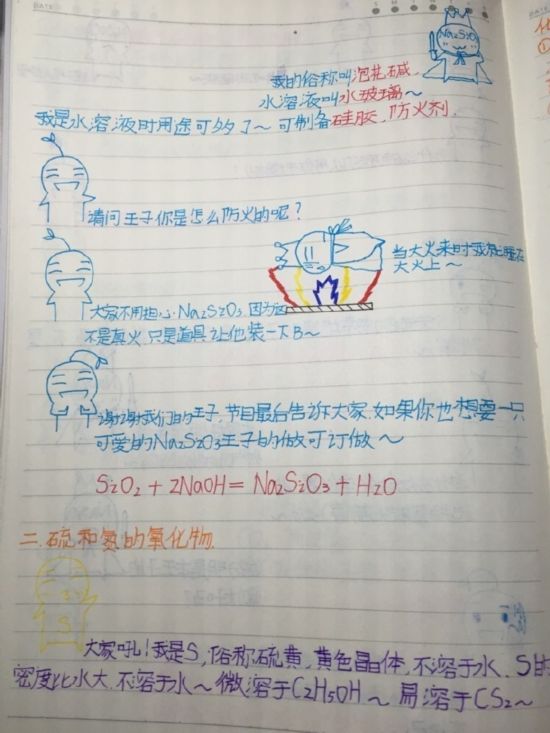 DATE
Na2SiO3
我的俗称叫泡花碱.
水溶液叫水玻璃~
我是水溶液时用途可多了~ 可制备硅胶、防火剂.
请问王子你是怎么防火的呢?
当大火来时我就睡在
大火上~
大家不用担心Na2SiO3, 因为这
不是真火,只是道具让他装一下B~
谢谢我们的王子, 节目最后告诉大家, 如果你也想要一只
可爱的Na2SiO3王子的做可订做~
SiO2 + 2NaOH = Na2SiO3 + H2O
二.硫和氮的氧化物.
S
大家吼!我是S, 俗称硫黄, 黄色晶体, 不溶于水. S的
密度比水大, 不溶于水~ 微溶于C2H5OH~ 易溶于CS2~